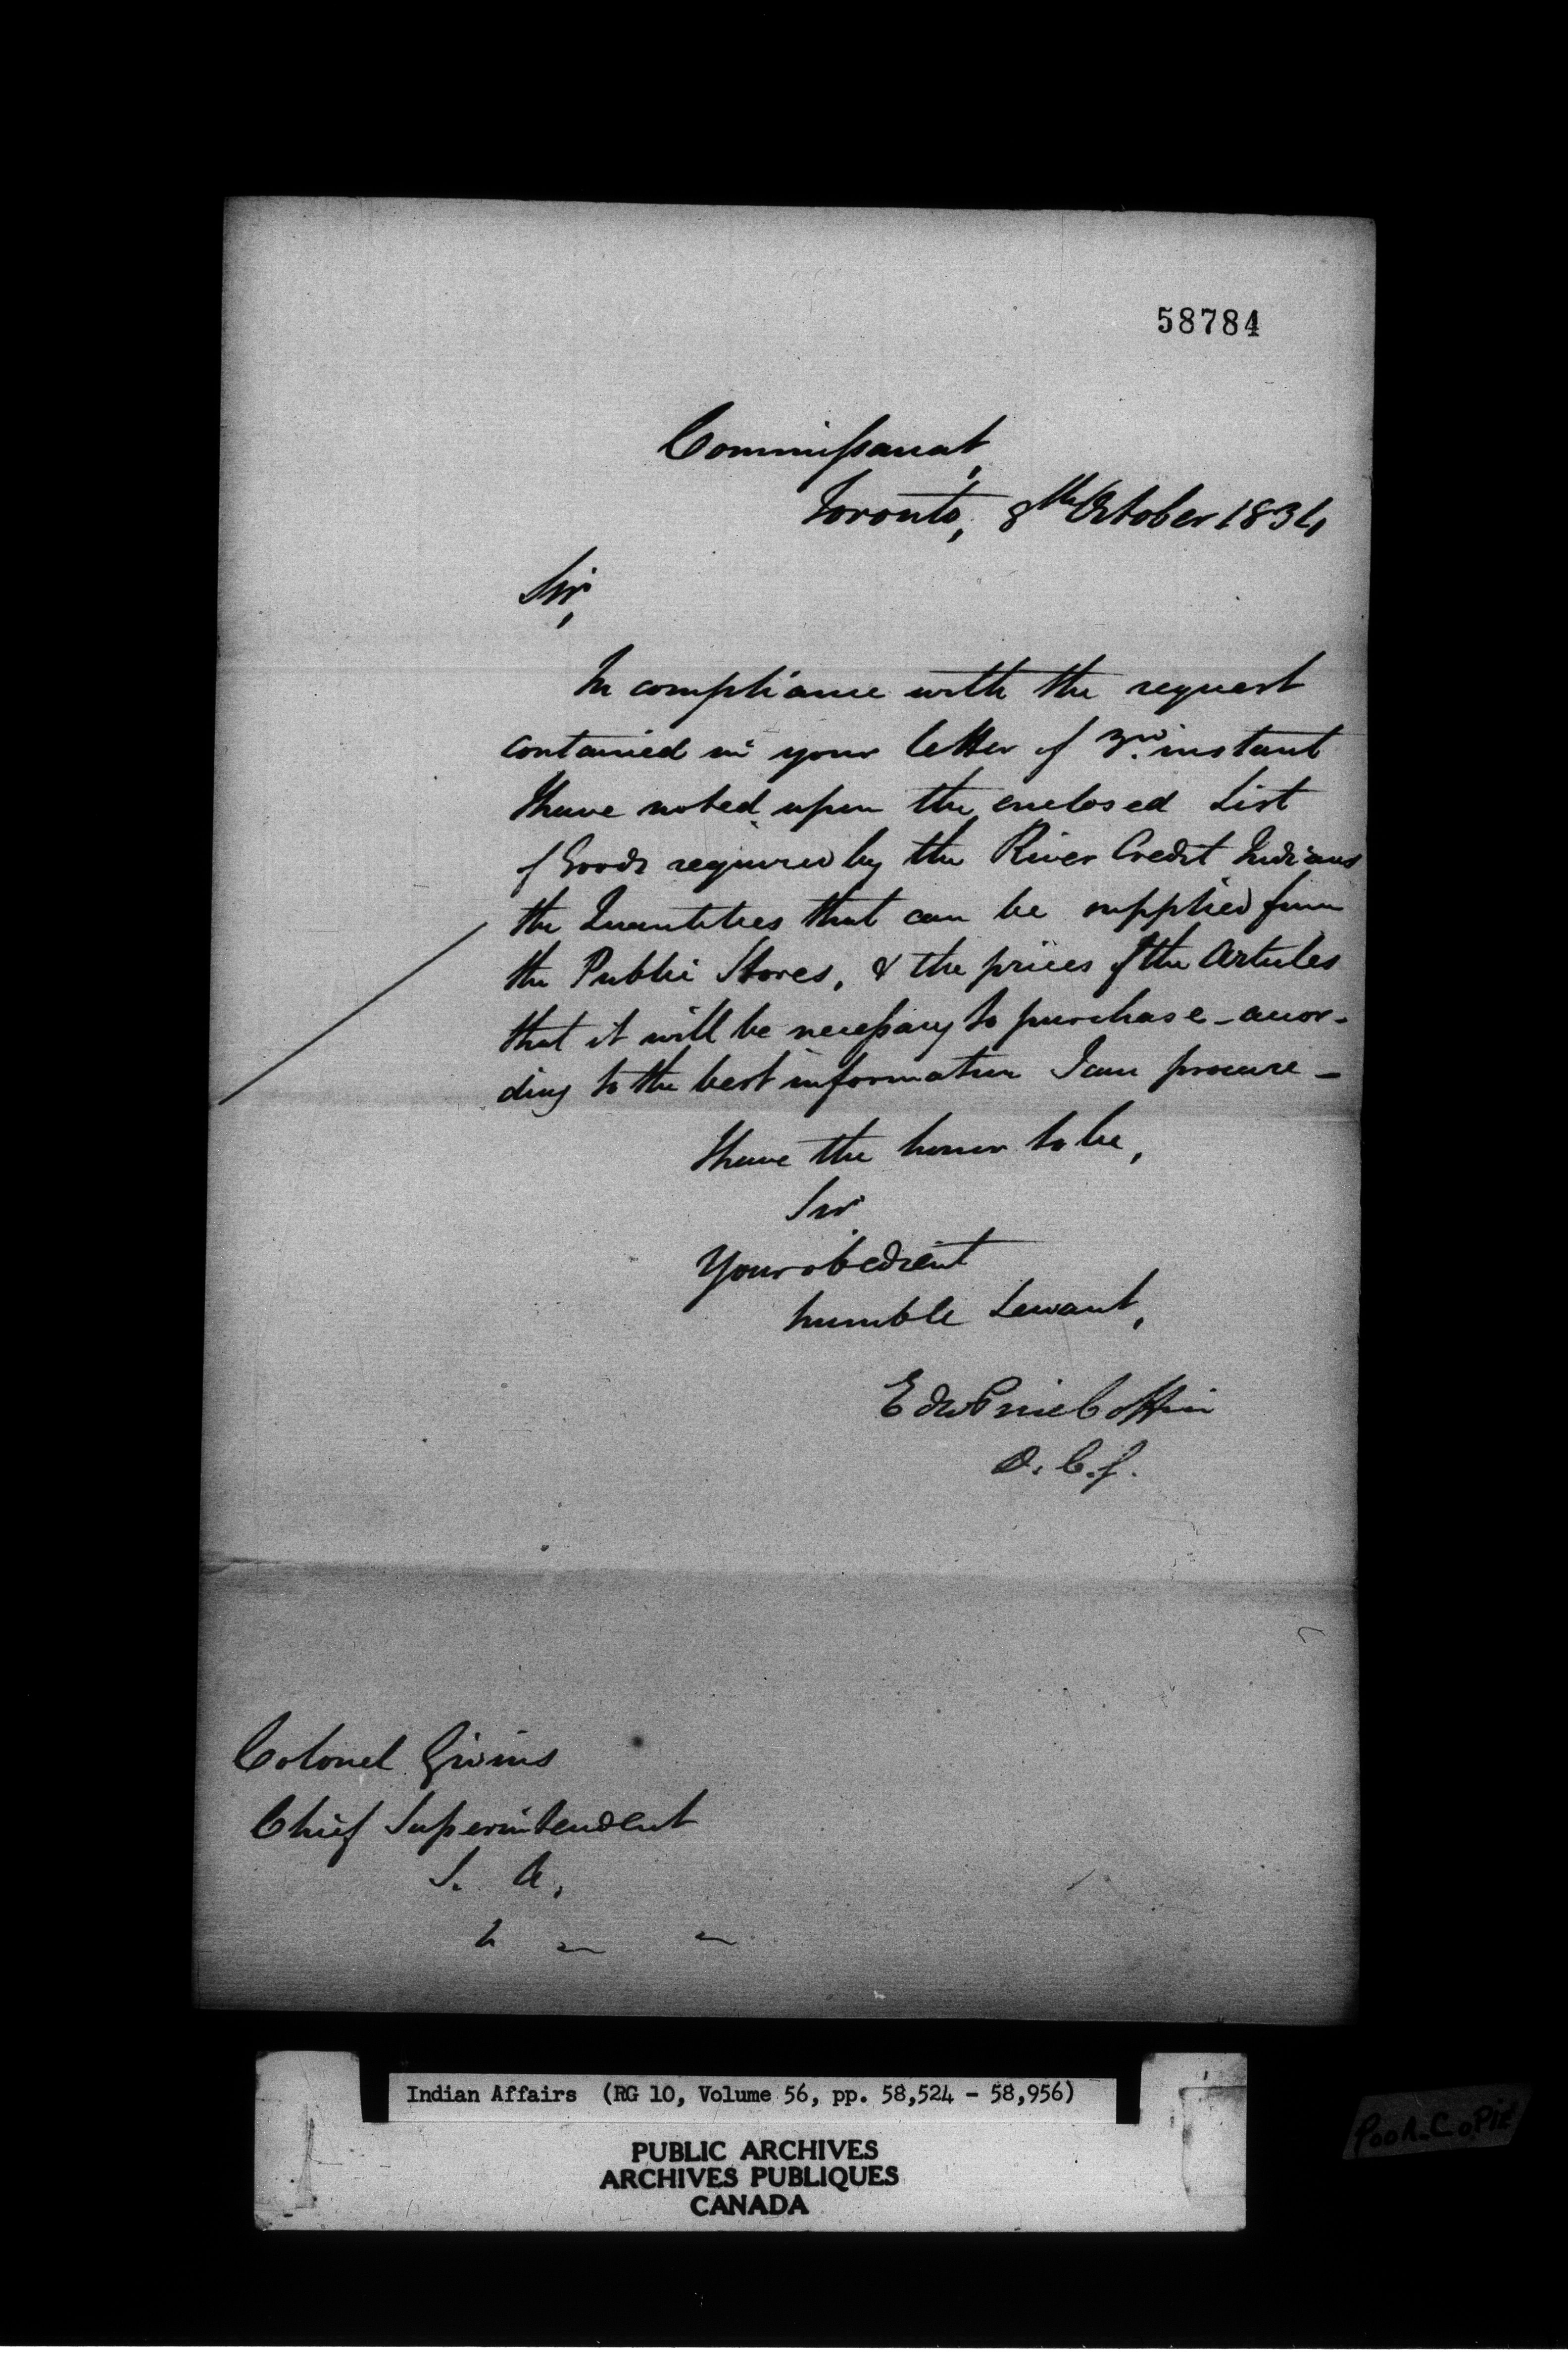 58784
Commissariat,
Toronto, 8th October 1834
Sir,
In compliance with the request
contained in your letter of 3rd. instant
I have noted upon the enclosed List
of Goods required by the River Credit Indians
the Quantities that can be supplied from
the Public Stores, & the prices of the Articles
that it will be necessary to purchase - accor-
ding to the best information I can procure -
I have the honor to be,
Sir
Your obedient
humble Servant,
Edw Price Coffin
D. C. G.
Colonel Givins
Chief Superintendent
I. A.
Indian Affairs (RG 10, Volume 56, pp. 58,524 - 58,956)
PUBLIC ARCHIVES
ARCHIVES PUBLIQUES
CANADA
Poor Copie